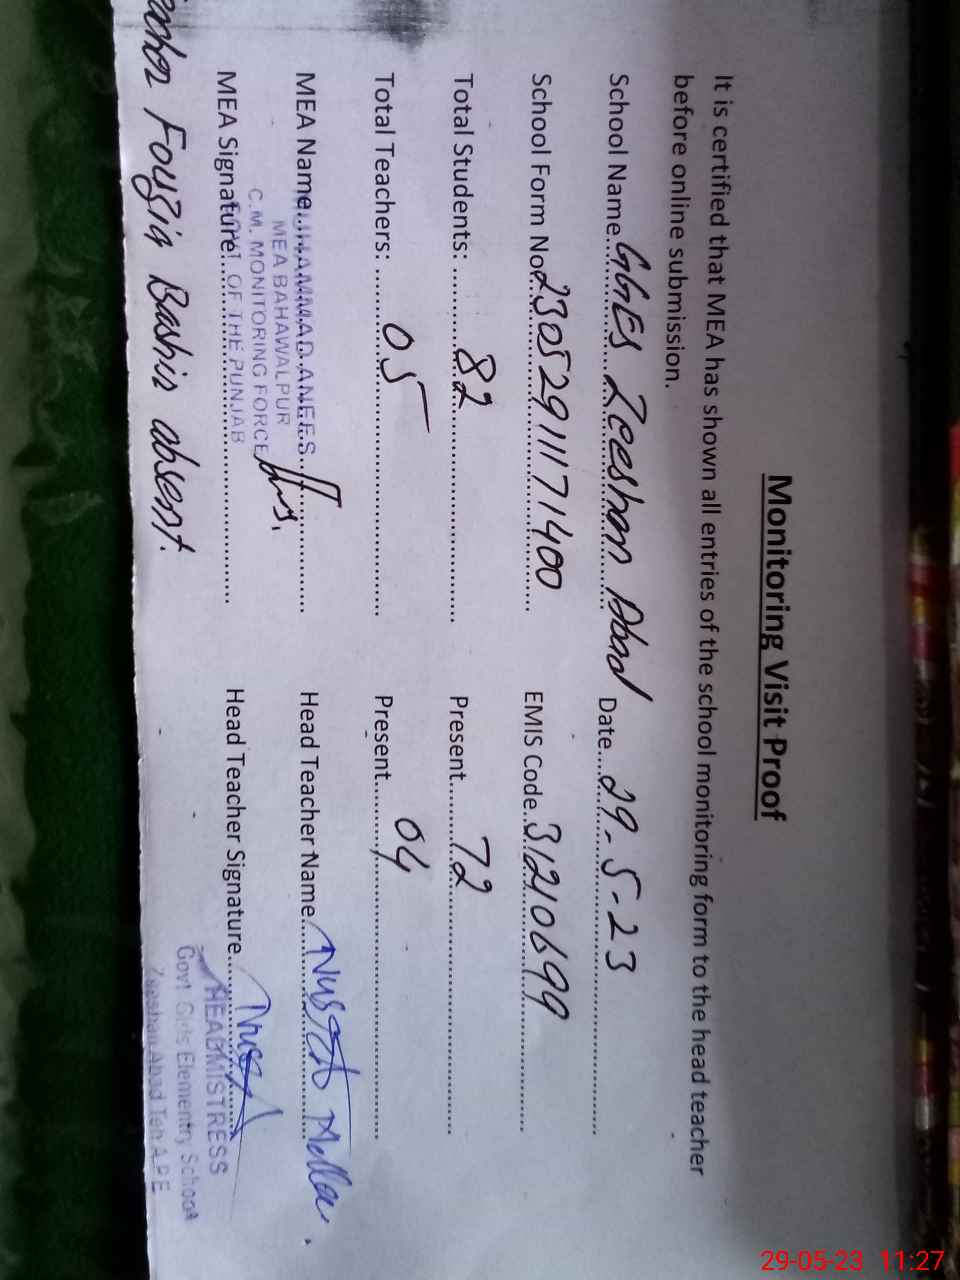 Monitoring Visit Proof
It is certified that MEA has shown all entries of the school monitoring form to the head teacher
before online submission.
School Name GGES Zeeshan Abad Date 29-5-23
School Form No 23052911171400 EMIS Code 31210699
Total Students: 82 Present 72
Total Teachers: 05 Present 04
MEA Name Head Teacher Name Nusrat
MUHAMMAD ANEES
MEA BAHAWALPUR
C.M. MONITORING FORCE
GOVT OF THE PUNJAB
MEA Signature Head Teacher Signature
HEADMISTRESS
Govt Girls Elementry School
Zeeshan Abad Teh A.P.E
Teacher Fouzia Bashir absent.
29-05-23 11:27